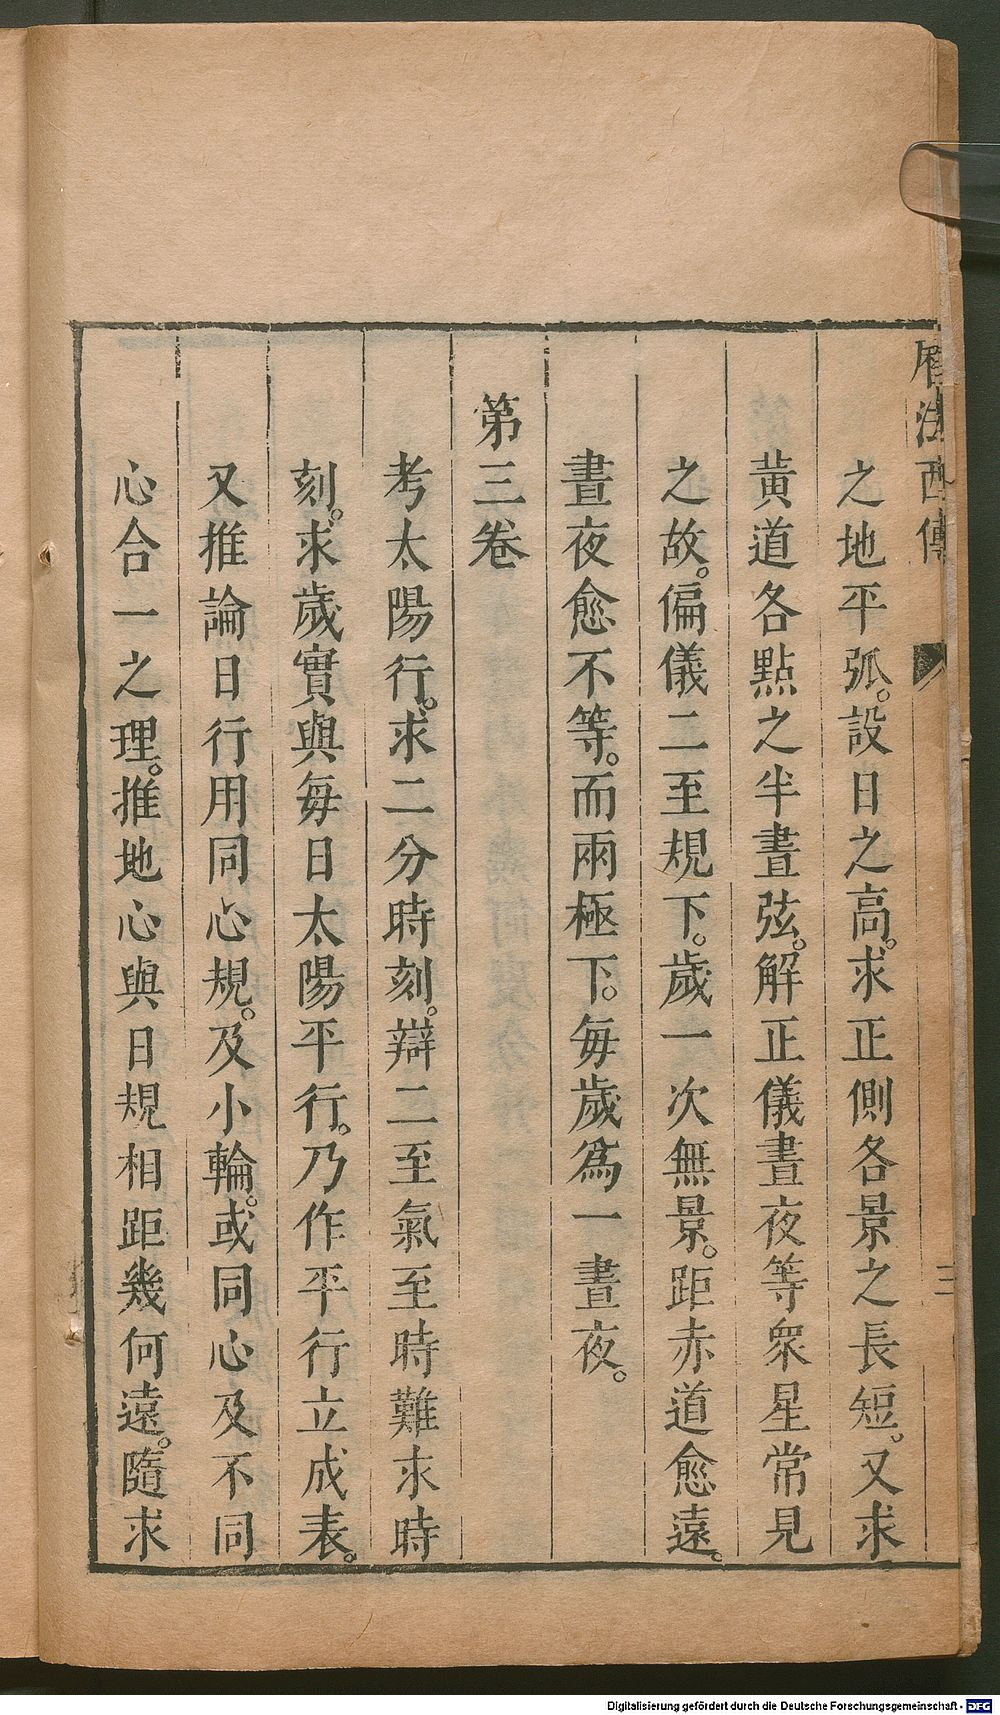 曆法西傳
三
之地平弧。設日之高。求正側各景之長短。又求
黃道各點之半晝弦。解正儀晝夜等衆星常見
之故。偏儀二至規下。歲一次無景。距赤道愈遠。
晝夜愈不等。而兩極下。每歲爲一晝夜。
第三卷
考太陽行。求二分時刻。辯二至氣至時難求時
刻。求歲實與每日太陽平行。乃作平行立成表。
又推論日行用同心規。及小輪。或同心及不同
心合一之理。推地心與日規相距幾何遠。隨求
Digitalisierung gefördert durch die Deutsche Forschungsgemeinschaft - DFG